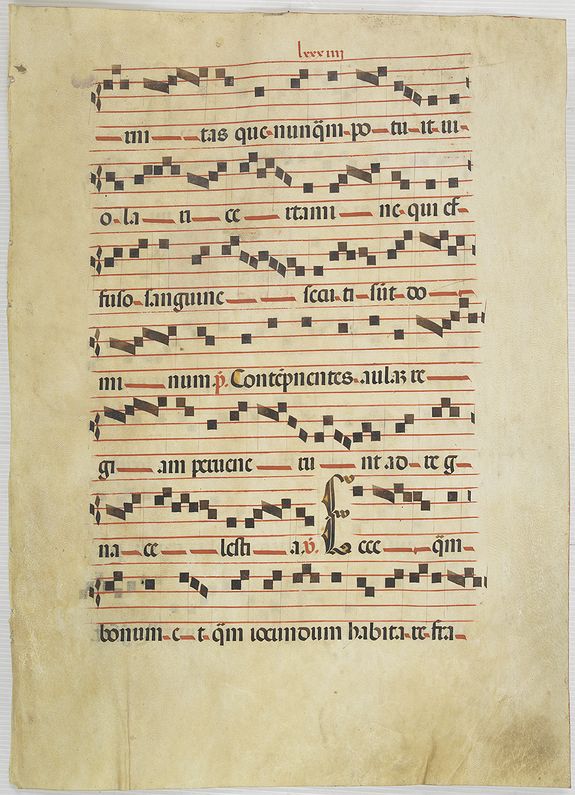 lxxxiiii
rni tas que nunq̄m po tu it ui
o la ri ce rtami ne qui ef
fuso sanguine secu ti sūt do
mi num p̄. Contēpnentes aulaꝫ re
gi am peruene ru nt ad re g
na ce lesti a. v̄. Ecce q̄m
bonum e t q̄m iocundum habita re fra